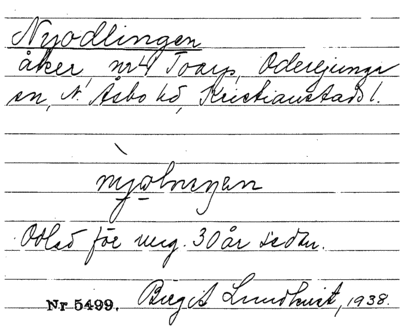 Nyodlingen
åker, nr 4 Toarp, Oderljunga
sn, N. Åsbo hd, Kristianstads l.
Odlad för ung. 30 år sedan.
Nr 5499. Birgit Lundkvist, 1938.